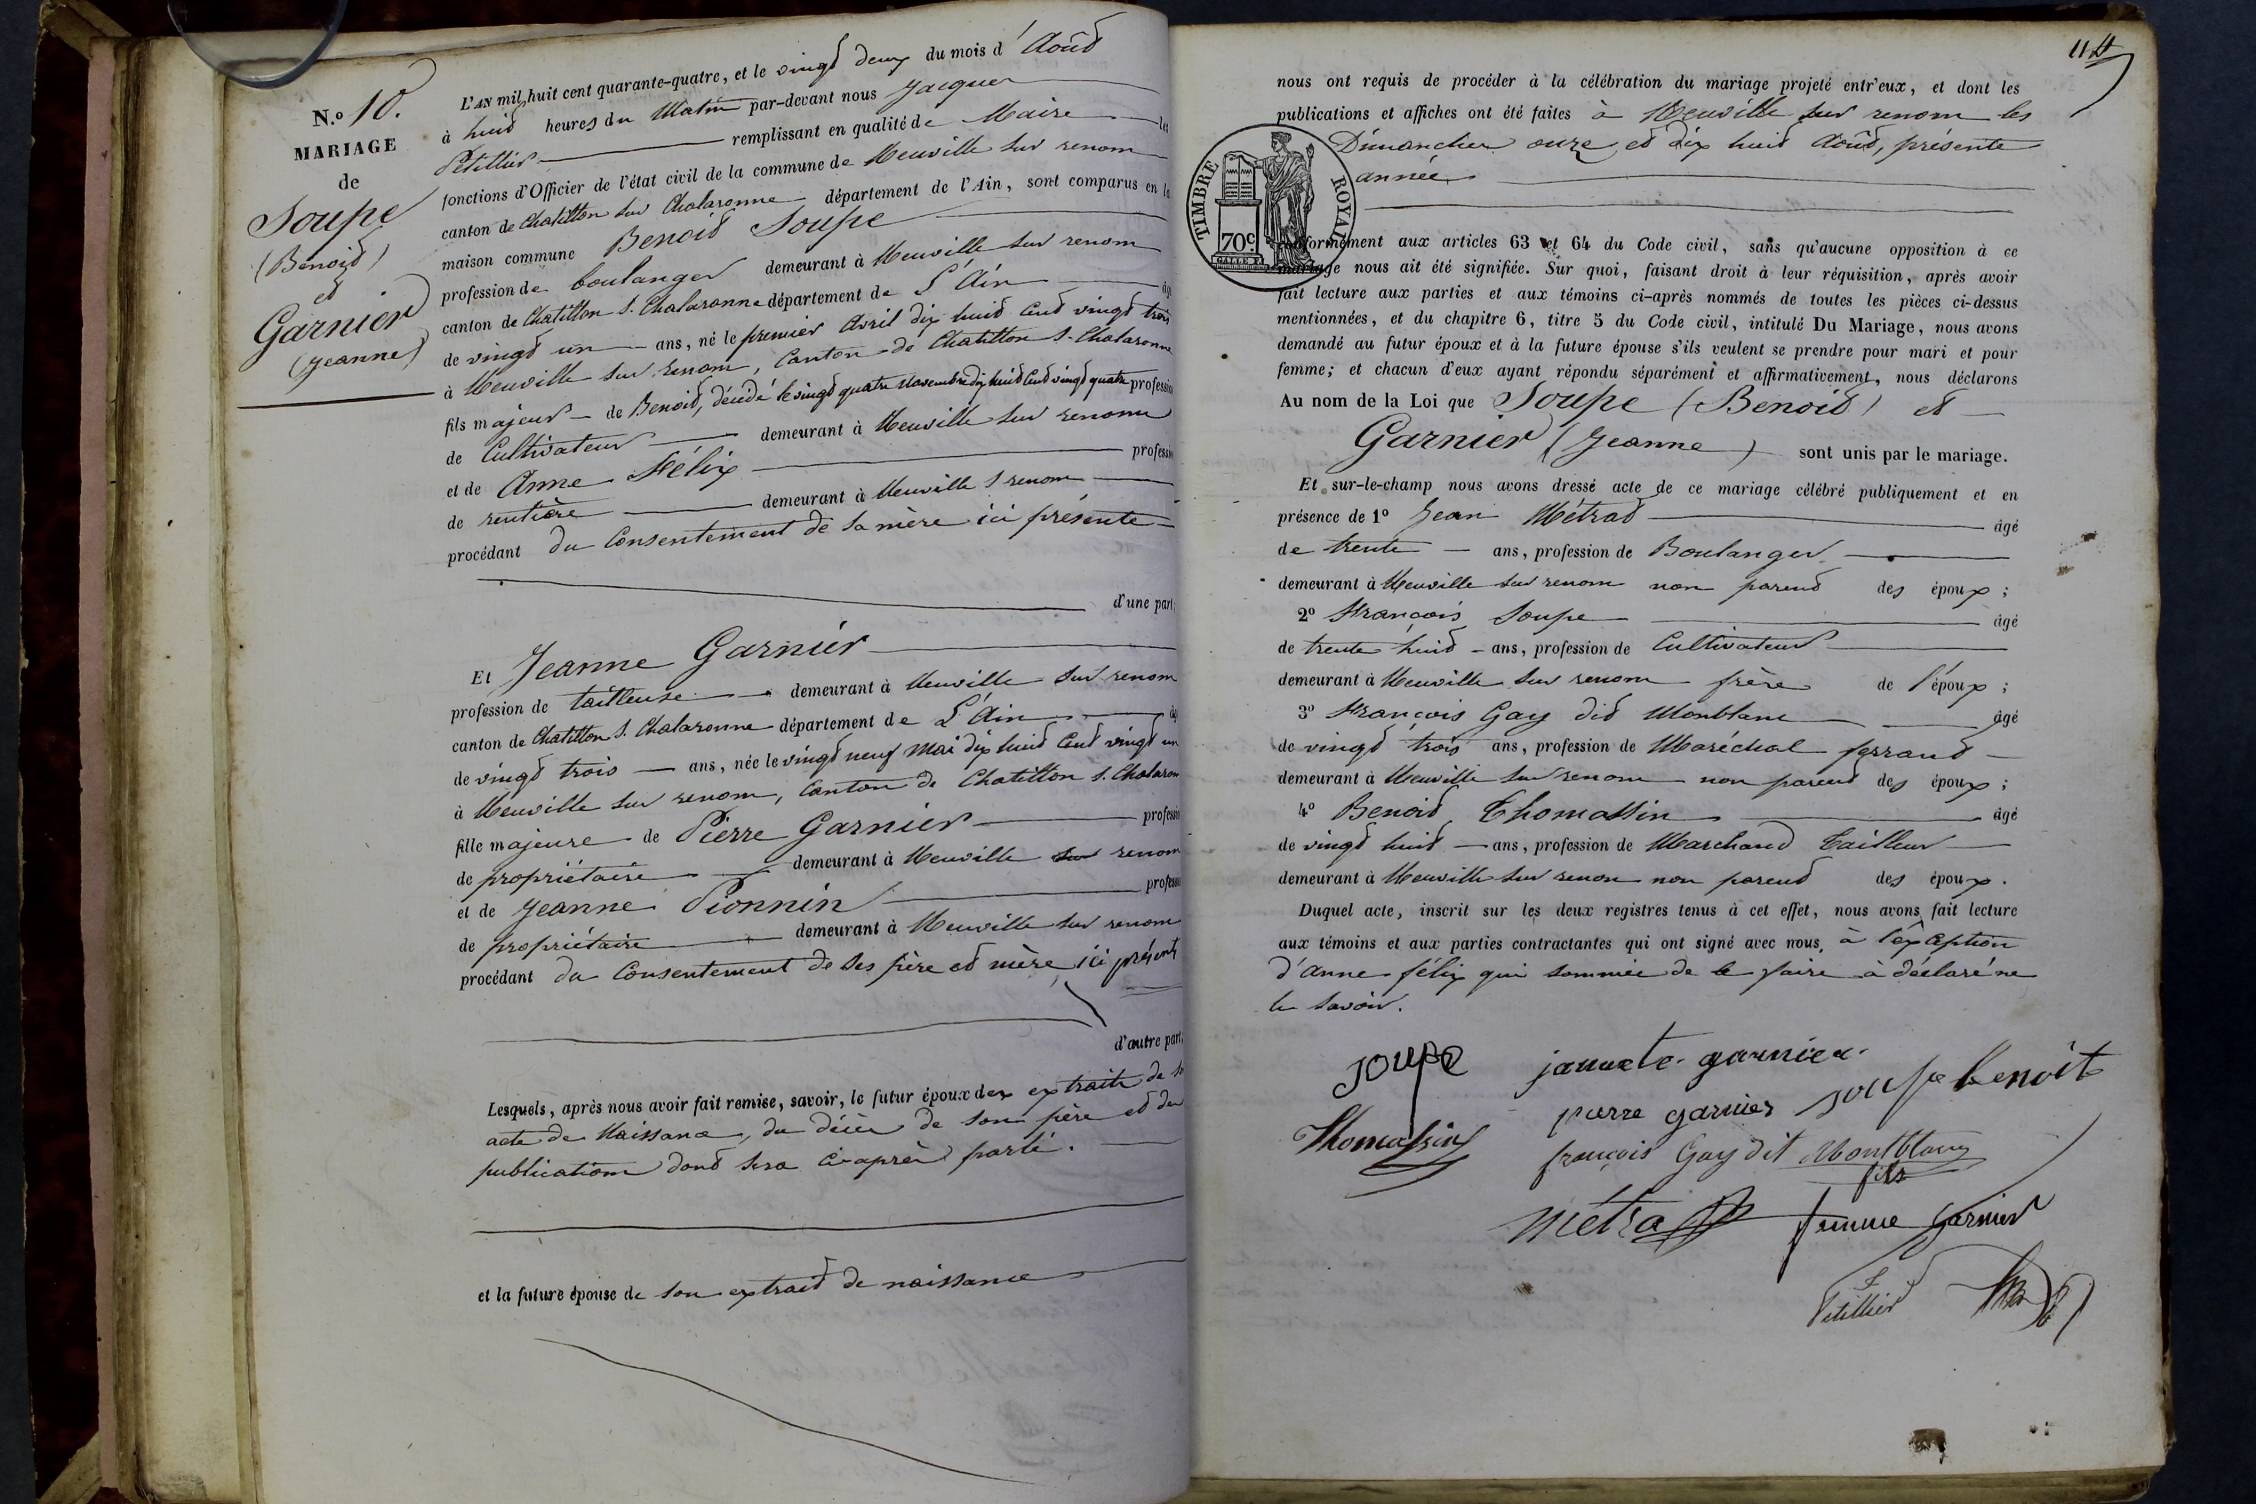 N.o 10.
MARIAGE
de
Soupe
(Benoid)
et
Garnier
(Jeanne)
L'AN mil huit cent quarante-quatre, et le vingd deux du mois d'Aoûd
à huid heures du Matin par-devant nous Jacques
Petillier remplissant en qualité de Maire les
fonctions d'Officier de l'état civil de la commune de Neuville sur renom
canton de Chatillon sur Chalaronne département de l'Ain, sont comparus en la
maison commune Benoid Soupe
profession de boulanger demeurant à Neuville sur renom
canton de Chatillon s. Chalaronne département de L'Ain âgé
de vingd un ans, né le premier Avril dix huid Cend vingd trois
à Neuville sur renom, Canton de Chatillon s. Chalaronne
fils majeur de Benoid, décédé le vingd quatre Novembre dix huid Cend vingd quatre profession
de Cultivateur demeurant à Neuville sur renom
et de Anne Félix profession
de rentière demeurant à Neuville s renom
procédant du Consentement de sa mère ici présente
d'une part;
Et Jeanne Garnier
profession de tailleuse demeurant à Neuville sur renom
canton de Chatillon s. Chalaronne département de L'Ain âgé
de vingd trois ans, née le vingd neuf Mai dix huid Cend vingd un
à Neuville sur renom, Canton de Chatillon s. Chalaron
fille majeure de Pierre Garnier profession
de propriétaire demeurant à Neuville sur renom
et de Jeanne Pionnin profession
de propriétaire demeurant à Neuville sur renom
procédant du Consentement de ses père et mère, ici présents
d'autre part.
Lesquels, après nous avoir fait remise, savoir, le futur époux des extraits de son
acte de Naissance, du décès de son père et des
publications dond sera ci-après parlé.
et la future épouse de son extraid de naissance
114
nous ont requis de procéder à la célébration du mariage projeté entr'eux, et dont les
publications et affiches ont été faites à Neuville sur renom les
Dimanches onze et dix huid Aoûd, présente
année.
TIMBRE ROYAL
70c.
conformément aux articles 63 et 64 du Code civil, sans qu'aucune opposition à ce
mariage nous ait été signifiée. Sur quoi, faisant droit à leur réquisition, après avoir
fait lecture aux parties et aux témoins ci-après nommés de toutes les pièces ci-dessus
mentionnées, et du chapitre 6, titre 5 du Code civil, intitulé Du Mariage, nous avons
demandé au futur époux et à la future épouse s'ils veulent se prendre pour mari et pour
femme; et chacun d'eux ayant répondu séparément et affirmativement, nous déclarons
Au nom de la Loi que Soupe (Benoid) et
Garnier (Jeanne) sont unis par le mariage.
Et sur-le-champ nous avons dressé acte de ce mariage célébré publiquement et en
présence de 1o Jean Métrad âgé
de trente ans, profession de Boulanger
demeurant à Neuville sur renom non parend des époux;
2o François Soupe âgé
de trente huid ans, profession de Cultivateur
demeurant à Neuville sur renom frère de l'époux;
3o François Gay did Monblanc âgé
de vingd trois ans, profession de Maréchal ferrand
demeurant à Neuville sur renom non parend des époux;
4o Benoid Thomassin âgé
de vingd huid ans, profession de Marchand Tailleur
demeurant à Neuville sur renom non parend des époux.
Duquel acte, inscrit sur les deux registres tenus à cet effet, nous avons fait lecture
aux témoins et aux parties contractantes qui ont signé avec nous, à l'exception
d'Anne félix qui sommée de le faire à déclaré ne
le savoir.
Soupe jannete garnier
pierre garnier soupe benoit
Thomassin françois Gay dit Montblanc
fils
Métra femme Garnier
Petillier